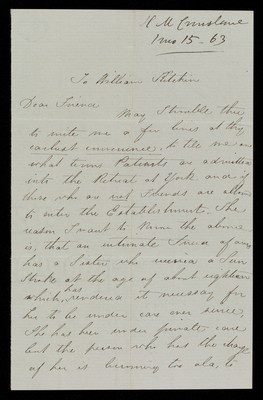 1 mo 15 - 63
To William
Dear Friend
May I trouble thee
to write me a few lines at thy
earliest convenience, to tell me on
what terms Patients are admitted
into the Retreat at York, and if
those who are not Friends are allowed
to enter the Establishment. The
reason I want to know the above
is, that an intimate Friend of mine
has a Sister who received a Sun
Stroke at the age of about eighteen
which has rendered it necessary for
her to be under care ever since,
She has been under private care
but the person who has the charge
of her is becoming too old, to